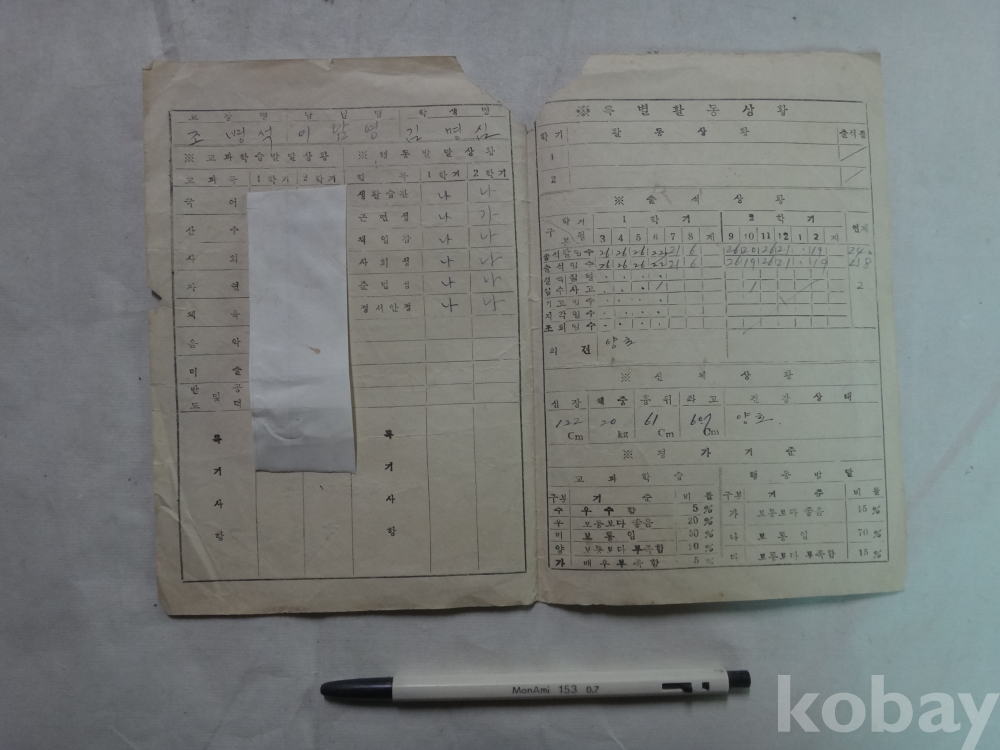 교장명 담임명 학생명
조 병 석 이 남 영 김 명 심
※ 교과학습발달상황 ※ 행동발달상황
교과목 1학기 2학기 항목 1학기 2학기
국어 생활습관 나 나
산수 근면성 나 가
사회 책임감 나 나
자연 사회성 나 나
체육 준법성 나 나
음악 정서안정 나 나
미술
반공 및 도덕
특기사항 특기사항
※ 특별활동상황
학기 활동상황 출석률
1
2
※ 출석상황
구분 학기 월별 1학기 2학기 합계
3 4 5 6 7 8 계 9 10 11 12 1 2 계
출석일수 26 26 26 22 21 6
사고
지각일수
조퇴일수
의견 양호
※ 신체상황
신장 체중 흉위 좌고 건강상태
122 Cm 20 kg 61 Cm Cm 양호.
※ 평가기준
교과학습 행동발달
구분 기준 비률 구분 기준 비률
수 우수함 5% 가 보통보다 좋음 15%
우 보통보다 좋음 20%
미 보통임 나 보통임 70%
양 보통보다 부족함 10% 다 보통보다 부족함 15%
가 매우부족함 5%
MonAmi 153 0.7
kobay